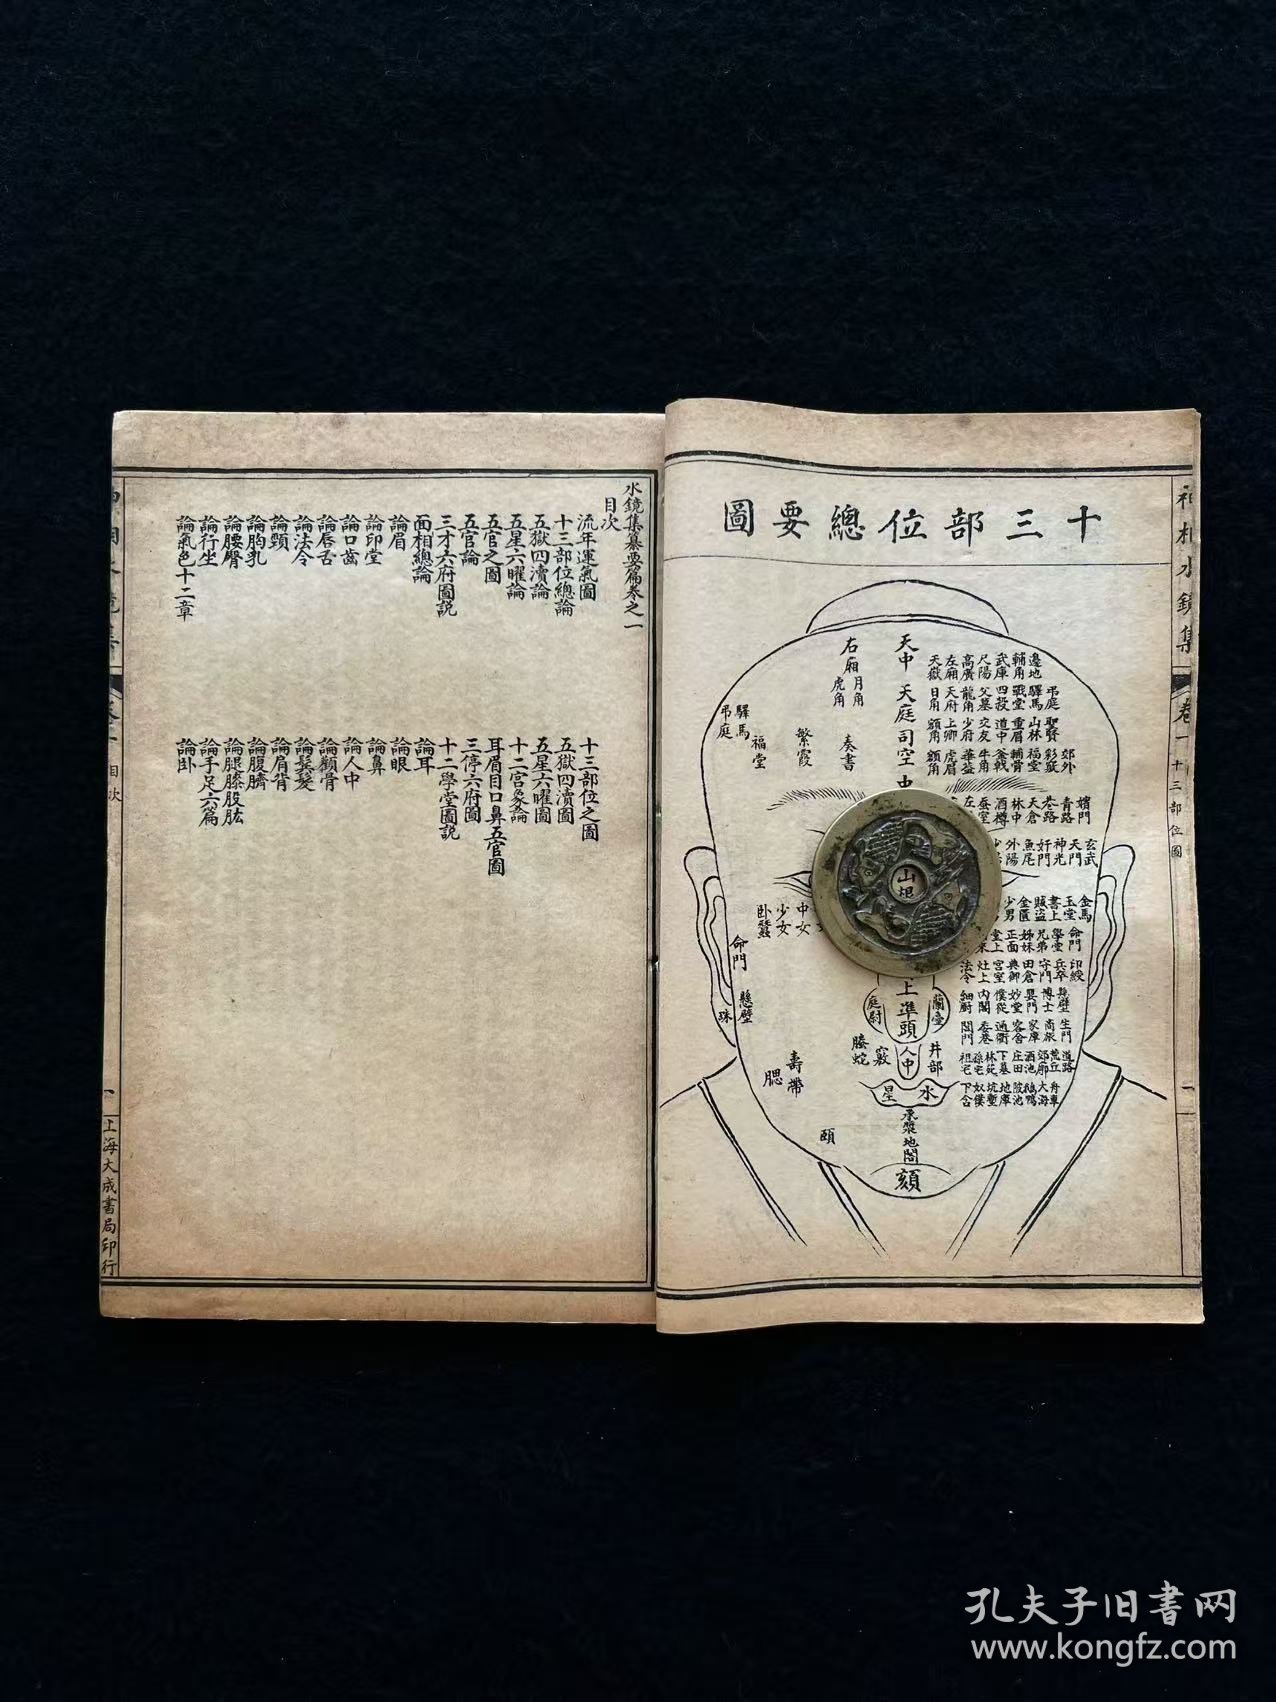 十三部位總要圖
神相水鏡集
卷一
十三部位圖
天中
天庭
司空
右廂
月角
虎角
驛馬
弔庭
福堂
繁霞
奏書
邊地
輔角
武庫
尺陽
高廣
左廂
天嶽
弔庭
驛馬
戰堂
四殺
父墓
龍角
天府
日角
聖賢
山林
重眉
道中
交友
少府
上卿
額角
郊外
福堂
牛角
華蓋
虎眉
青路
巷路
天倉
林中
酒樽
蠶室
玄武
天門
神光
奸門
魚尾
外陽
金馬
玉堂
書上
賊盜
金匱
少男
命門
學堂
兄弟
姊妹
正面
堂上
印綬
兵卒
守門
田倉
典御
宮室
灶上
法令
懸壁
博士
嬰門
妙堂
僕從
內閣
細廚
生門
商旅
家庫
客舍
通衢
委巷
閭門
道路
荒丘
郊廓
酒池
庄田
下墓
林苑
孫宅
祖宅
舟車
大海
鵝鴨
陂池
地庫
坑塹
奴僕
下舍
山
中女
少女
卧蠶
命門
懸壁
珠
庭尉
準頭
蘭臺
人中
井部
螣蛇
壽帶
腮
水星
承漿
地閣
頤
頦
水鏡集纂要篇卷之一
目次
流年運氣圖
十三部位之圖
十三部位總論
五獄四瀆圖
五獄四瀆論
五星六曜圖
五星六曜論
十二宮象論
五官之圖
耳眉目口鼻五官圖
五官論
三停六府圖
三才六府圖説
十二學堂圖説
面相總論
論耳
論眉
論眼
論印堂
論鼻
論口齒
論人中
論唇舌
論顴骨
論法令
論鬚髮
論頸
論肩背
論胸乳
論腹臍
論腰臀
論腿膝股肱
論行坐
論手足六篇
論氣色十二章
論卦
目次
一
上海大成書局印行
孔夫子旧书网
www.kongfz.com